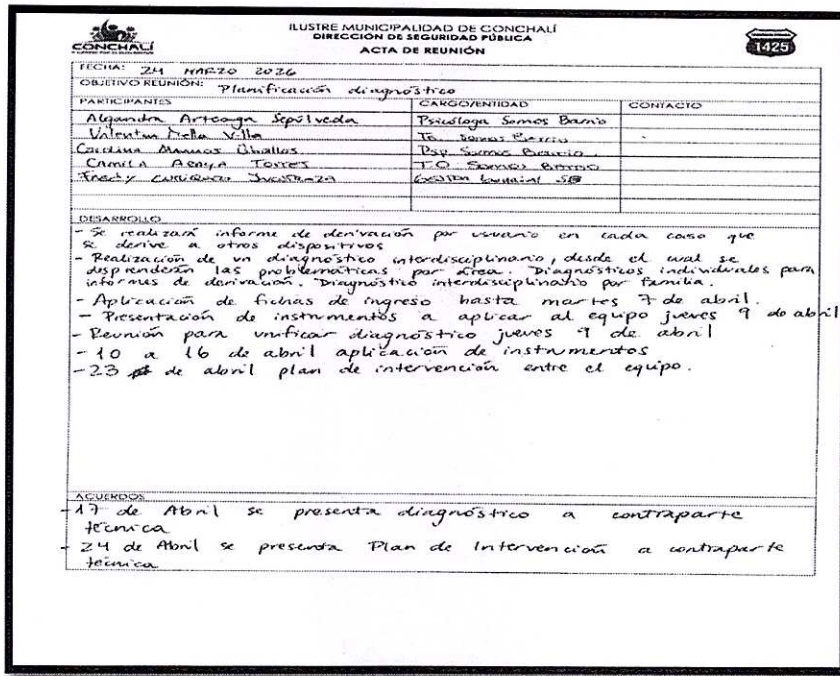 CONCHALÍ
ILUSTRE MUNICIPALIDAD DE CONCHALÍ
DIRECCIÓN DE SEGURIDAD PÚBLICA
ACTA DE REUNIÓN
1425
FECHA: 24 MARZO 2026
OBJETIVO REUNIÓN: Planificación diagnóstico
PARTICIPANTES CARGO/ENTIDAD CONTACTO
Arteaga Sepúlveda Psicóloga Somos Barrio
Villa Somos Barrio
Psp Somos Barrio
Camila Torres T.O Somos Barrio
DESARROLLO
- Se realizará informe de derivación por usuario en cada caso que
se derive a otros dispositivos
- Realización de un diagnóstico interdisciplinario, desde el cual se
desprenderán las problemáticas por área. Diagnósticos individuales para
informes de derivación. Diagnóstico interdisciplinario por familia.
- Aplicación de fichas de ingreso hasta martes 7 de abril.
- Presentación de instrumentos a aplicar al equipo jueves 9 de abril
- Reunión para unificar diagnóstico jueves 9 de abril
- 10 a 16 de abril aplicación de instrumentos
- 23 de abril plan de intervención entre el equipo.
ACUERDOS
- 17 de Abril se presenta diagnóstico a contraparte
técnica
- 24 de Abril se presenta Plan de Intervención a contraparte
técnica